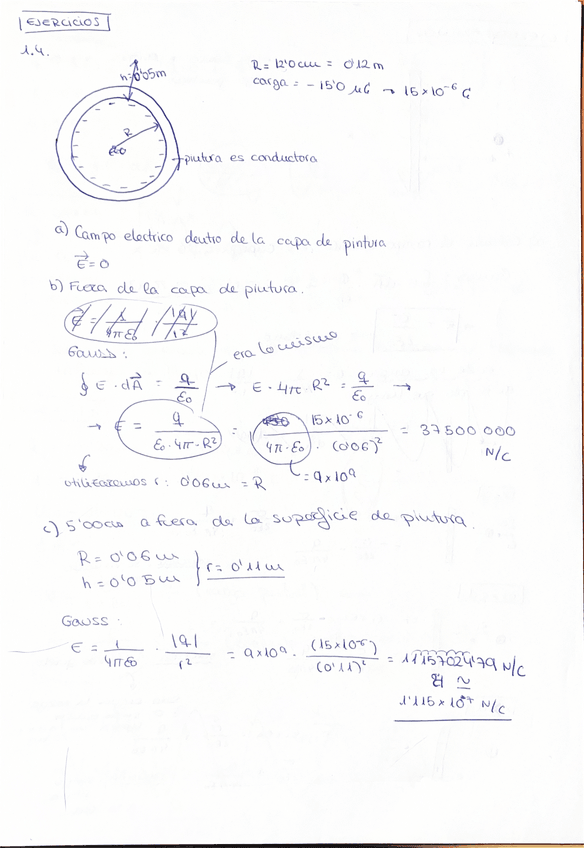 EJERCICIOS
1.4.
h=0'05m
R
pintura es conductora
R= 12'0cm = 0'12m
carga = -15'0 μC → 15×10⁻⁶ C
a) Campo electrico dentro de la capa de pintura
E⃗=0
b) Fuera de la capa de pintura.
era lo mismo
Gauss:
∮ E · dA⃗ = q/ε₀ → E · 4π · R² = q/ε₀ →
→ E = q/(ε₀·4π·R²) = 15×10⁻⁶/(4π·ε₀ · (0'06)²) = 37500000 N/C
= 9×10⁹
utilizaremos r: 0'06m = R
c) 5'00cm a fuera de la superficie de pintura.
R= 0'06m
h= 0'05m
r= 0'11m
Gauss:
E = 1/(4πε₀) · |q|/r² = 9×10⁹ · (15×10⁻⁶)/(0'11)² = 11157024'79 N/C
≃
1'115×10⁺⁷ N/C